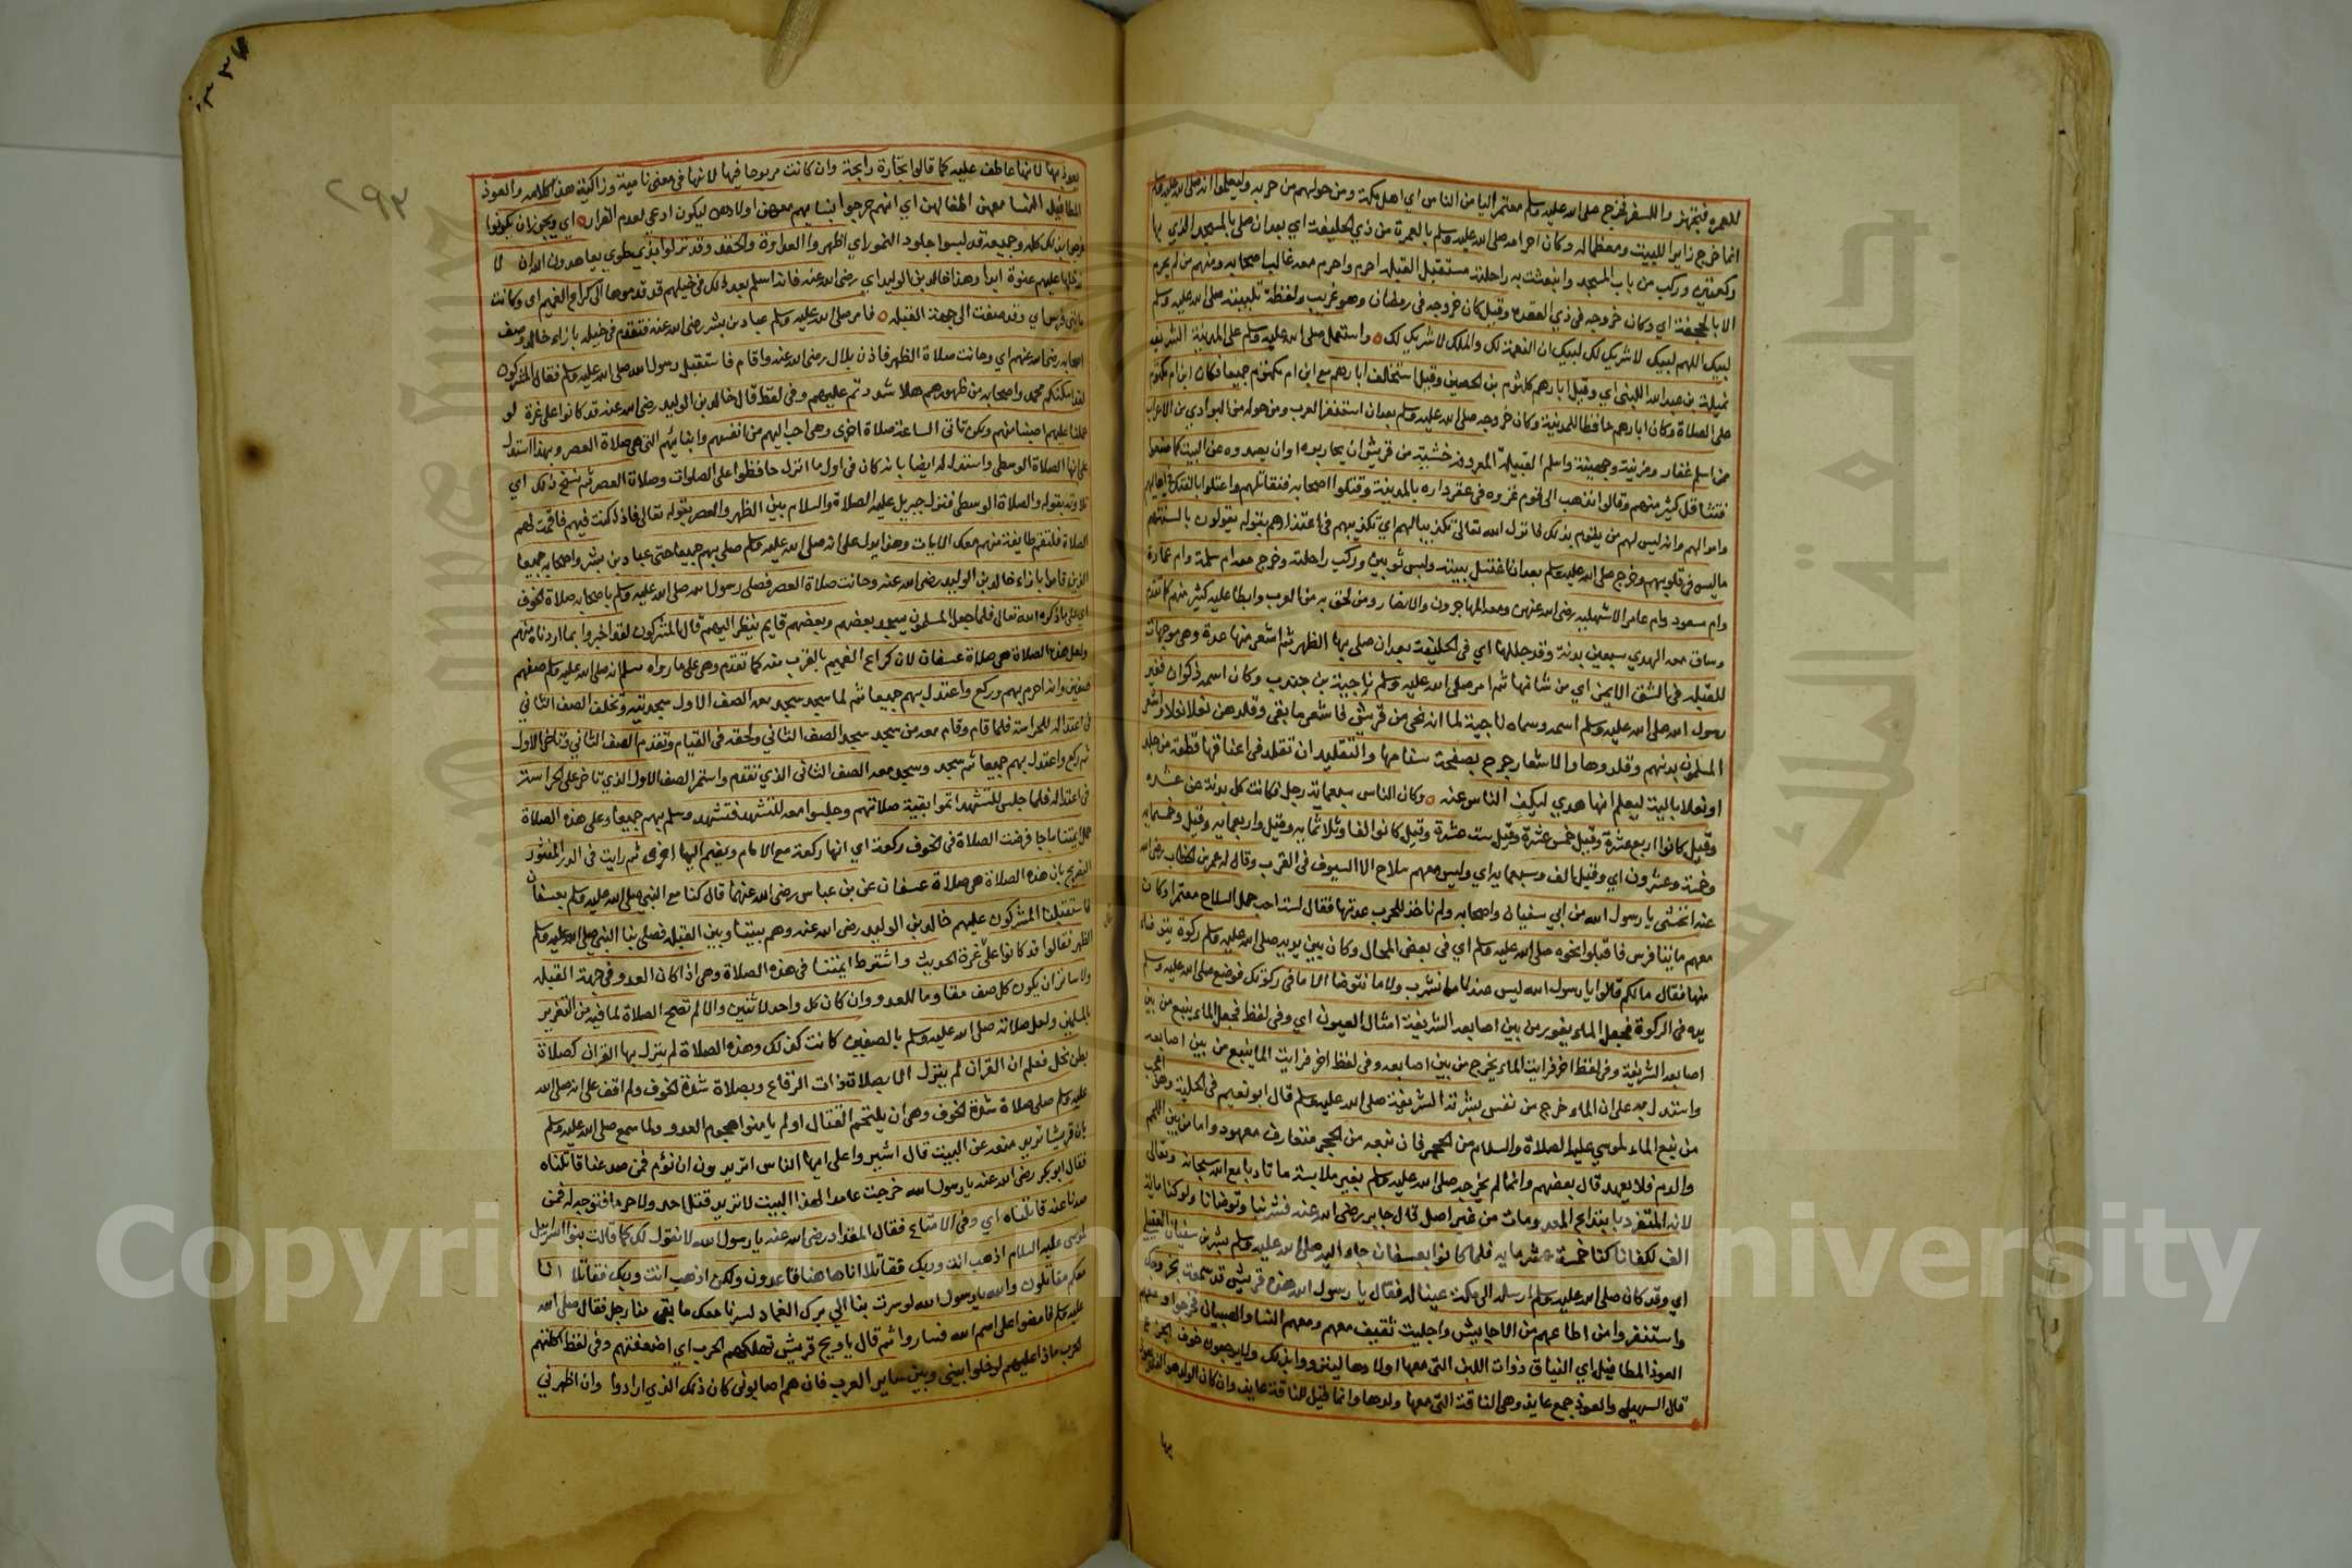 للعمرة فتجهزوا للسفر فخرج صلى الله عليه وسلم معتمرا ليأمن الناس اي اهل مكة ومن حولهم من حربه وليعلموا انه صلى الله عليه وسلم
انما خرج زايرا للبيت ومعظما له وكان احرامه صلى الله عليه وسلم بالعمرة من ذي الحليفة اي بعد ان صلى بالمسجد الذي بها
ركعتين وركب من باب المسجد وانبعثت به راحلته مستقبل القبلة احرم واحرم معه غالب اصحابه ومنهم من لم يحرم
الا بالجحفة اي وكان خروجه في ذي القعدة وقيل كان خروجه في رمضان وهو غريب ولفظة تلبيته صلى الله عليه وسلم
لبيك اللهم لبيك لا شريك لك لبيك ان النعمة لك والملك لا شريك لك واستعمل صلى الله عليه وسلم على المدينة الشريفة
نميلة بن عبد الله الليثي اي وقيل ابا رهم كلثوم بن الحصين وقيل استخلف ابا رهم مع ابن ام مكتوم جميعا فكان ابن ام مكتوم
على الصلاة وكان ابا رهم حافظا للمدينة وكان خروجه صلى الله عليه وسلم بعد ان استنفر العرب ومن حوله من البوادي من الاعراب
من اسلم غفار ومزينة وجهينة واسلم القبيلة المعروفة خشية من قريش ان يحاربوه او ان يصدوه عن البيت كما صنعوا
فتثاقل كثير منهم وقالوا انذهب الى قوم غزوه في عقر داره بالمدينة وقتلوا اصحابه فنقاتلهم واعتلوا بالشغل باهاليهم
واموالهم وانه ليس لهم من يقوم بذلك فانزل الله تعالى تكذيبا لهم اي تكذيبهم في اعتذارهم بقوله يقولون بالسنتهم
ما ليس في قلوبهم وخرج صلى الله عليه وسلم بعد ان اغتسل ببيته ولبس ثوبين وركب راحلته وخرج معه ام سلمة وام عمارة
وام مسعود وام عامر الاشهلية رضي الله عنهن ومعه المهاجرون والانصار ومن لحق به من العرب وابطا عليه كثير منهم كما تقدم
وساق معه الهدي سبعين بدنة وقد جللها اي في الحليفة بعد ان صلى بها الظهر ثم اشعر منها عدة وهي موجهات
للقبلة في الشق الايمن اي من شانها ثم امر صلى الله عليه وسلم ناجية بن جندب وكان اسمه ذكوان فغير
رسول الله صلى الله عليه وسلم اسمه وسماه ناجية لما انه نجى من قريش فاشعر ما بقى وقلدهن نعلا نعلا واشعر
المسلمون بدنهم وقلدوها والاشعار جرح بصفحة سنامها والتقليد ان تقلد في اعناقها قطعة من جلد
او نعلا بالية ليعلم انها هدي ليكف الناس عنه وكان الناس سبعماية رجل فكانت كل بدنة عن عشرة
وقيل كانوا اربع عشرة وقيل خمس عشرة وقيل ست عشرة وقيل كانوا الفا وثلاثماية وقيل واربعماية وقيل وخمسماية
وخمسة وعشرون اي وقيل الف وسبعماية اي وليس معهم سلاح الا السيوف في القرب وقال له عمر بن الخطاب رضي الله
عنه اتخشى يا رسول الله من ابي سفيان واصحابه ولم ناخذ للحرب عدتها فقال لست احب حمل السلاح معتمرا وكان
معهم مايتا فرس فاقبلوا نحوه صلى الله عليه وسلم اي في بعض المحال وكان بين يديه صلى الله عليه وسلم ركوة يتوضا
منها فقال ما لكم قالوا يا رسول الله ليس عندنا ما نشرب ولا ما نتوضا الا ما في ركوتك فوضع صلى الله عليه وسلم
يده في الركوة فجعل الماء يفور من بين اصابعه الشريفة امثال العيون اي وفي لفظ فجعل الماء ينبع من بين
اصابعه الشريفة وفي لفظ اخر فرايت الماء يخرج من بين اصابعه وفي لفظ اخر فرايت الما ينبع من بين اصابعه
واستدل به على ان الماء خرج من نفس بشرته الشريفة صلى الله عليه وسلم قال ابو نعيم في الحلية وهو اعجب
من نبع الماء لموسى عليه الصلاة والسلام من الحجر فان نبعه من الحجر متعارف معهود واما من بين اللحم
والدم فلا يعهد قال بعضهم وانما لم يخرجه صلى الله عليه وسلم بغير ملابسة ما تادبا مع الله سبحانه وتعالى
لانه المتفرد بابتداع المعدومات من غير اصل قال جابر رضي الله عنه فشربنا وتوضانا ولو كنا ماية
الف لكفانا كنا خمسة عشر ماية فلما كانوا بعسفان جاء اليه صلى الله عليه وسلم بشر بن سفيان العتيلي
اي وقد كان صلى الله عليه وسلم ارسله الى مكة عينا له فقال يا رسول الله هذه قريش قد سمعت بخروجك
واستنفروا من اطاعهم من الاحابيش واجلبت ثقيف معهم ومعهم النسا والصبيان فخرجوا ومعهم
العوذ المطافيل اي النياق ذوات اللبن التي معها اولادها ليتزودوا بذلك ولا يرجعون خوف الجوع
قال السهيلي والعوذ جمع عايذ وهي الناقة التي معها ولدها وانما قيل للناقة عايذ وان كان الولد هو الذي يعوذ
بها
٢٩٣
يعوذ بها لانها عاطف عليه كما قالوا تجارة رابحة وان كانت مربوحا فيها لانها في معنى نامية وزاكية هذا كلامه والعوذ
المطافيل النسا معهن اطفالهن اي انهم خرجوا بنسايهم معهن اولادهن ليكون ادعى لعدم الفرار اي ويجوز ان يكونوا
خرجوا بذلك كله وجميعه قد لبسوا جلود النمور اي اظهروا العداوة والحقد وقد نزلوا بذي طوى يعاهدون الله ان لا
تدخلها عليهم عنوة ابدا وهذا خالد بن الوليد اي رضي الله عنه فانه اسلم بعد ذلك في خيلهم قد قدموها الى كراع الغميم اي وكانت
مايتي فرس اي وقد صفت الى جهة القبلة فامر صلى الله عليه وسلم عباد بن بشر رضي الله عنه فتقدم في خيله بازاء خالد وصف
اصحابه رضي الله عنهم اي وحانت صلاة الظهر فاذن بلال رضي الله عنه واقام فاستقبل رسول الله صلى الله عليه وسلم فقال المشركون
لقد امكنكم محمد واصحابه من ظهورهم هلا شددتم عليهم وفي لفظ قال خالد بن الوليد رضي الله عنه قد كانوا على غرة لو
حملنا عليهم اصبنا منهم ولكن تاتي الساعة صلاة اخرى وهي احب اليهم من انفسهم وابنايهم التي هي صلاة العصر وبهذا استدل
على انها الصلاة الوسطى واستدل له ايضا بانه كان في اول ما انزل حافظوا على الصلوات وصلاة العصر ثم نسخ ذلك اي
تلاوته بقوله والصلاة الوسطى فنزل جبريل عليه الصلاة والسلام بين الظهر والعصر بقوله تعالى فاذا كنت فيهم فاقمت لهم
الصلاة فلتقم طايفة منهم معك الايات وهذا يدل على انه صلى الله عليه وسلم صلى بهم جميعا حتى عباد بن بشر واصحابه جميعا
الذين قاموا بازاء خالد بن الوليد رضي الله عنه وحانت صلاة العصر فصلى رسول الله صلى الله عليه وسلم باصحابه صلاة الخوف
اي على ما ذكره الله تعالى فلما جعل المسلمون يسجد بعضهم وبعضهم قايم ينظر اليهم قال المشركون لقد اخبروا بما اردناه منهم
ولعل هذه الصلاة هي صلاة عسفان لان كراع الغميم بالقرب منه كما تقدم وهي على ما رواه مسلم انه صلى الله عليه وسلم صفهم
صفين وانه احرم بهم وركع واعتدل بهم جميعا ثم لما سجد سجد معه الصف الاول سجدتيه وتخلف الصف الثاني
في اعتداله للحراسة فلما قام وقام معه من سجد سجد الصف الثاني ولحقه في القيام وتقدم الصف الثاني وتاخر الاول
ثم ركع واعتدل بهم جميعا ثم سجد وسجد معه الصف الثاني الذي تقدم واستمر الصف الاول الذي تاخر على الحراسة
في اعتداله فلما جلس للتشهد اتموا بقية صلاتهم وجلسوا معه للتشهد فتشهد وسلم بهم جميعا وعلى هذه الصلاة
حمل ايمتنا ما جا فرضت الصلاة في الخوف ركعة اي انها ركعة مع الامام ويضم اليها اخرى ثم رايت في الدر المنثور
التصريح بان هذه الصلاة هي صلاة عسفان عن بن عباس رضي الله عنهما قال كنا مع النبي صلى الله عليه وسلم بعسفان
فاستقبلنا المشركون عليهم خالد بن الوليد رضي الله عنه وهم بيننا وبين القبلة فصلى بنا النبي صلى الله عليه وسلم
الظهر فقالوا قد كانوا على غرة الحديث واشترط ايمتنا في هذه الصلاة وهي اذا كان العدو في جهة القبلة
ولا ساتر ان يكون كل صف مقاوما للعدو وان كان كل واحد لاثنين والا لم تصح الصلاة لما فيه من التغرير
بالمسلمين ولعل صلاته صلى الله عليه وسلم بالصفين كانت كذلك وهذه الصلاة لم ينزل بها القران كصلاة
بطن نخل فعلم ان القران لم ينزل الا بصلاة ذات الرقاع وبصلاة شدة الخوف ولم اقف على انه صلى الله
عليه وسلم صلى صلاة شدة الخوف وهي ان يلتحم القتال او لم يامنوا هجوم العدو ولما سمع صلى الله عليه وسلم
بان قريشا تريد منعه عن البيت قال اشيروا علي ايها الناس اتريدون ان نؤم فمن صدعنا قاتلناه
فقال ابو بكر رضي الله عنه يا رسول الله خرجت عامدا لهذا البيت لا تريد قتل احد ولا حربا فتوجه له فمن
صدنا عنه قاتلناه اي وفي الامتاع فقال المقداد رضي الله عنه يا رسول الله لا نقول لك كما قالت بنوا اسرائيل
لموسى عليه السلام اذهب انت وربك فقاتلا انا هاهنا قاعدون ولكن اذهب انت وربك فقاتلا انا
معكم مقاتلون والله يا رسول الله لو سرت بنا الى برك الغماد لسرنا معك ما بقي منا رجل فقال صلى الله
عليه وسلم فامضوا على اسم الله فساروا ثم قال يا ويح قريش نهكتهم الحرب اي اضعفتهم وفي لفظ اكلتهم
الحرب ماذا عليهم لو خلوا بيني وبين ساير العرب فان هم اصابوني كان ذلك الذي ارادوا وان اظهرني
Copyright © King Saud University
جامعة الملك سعود